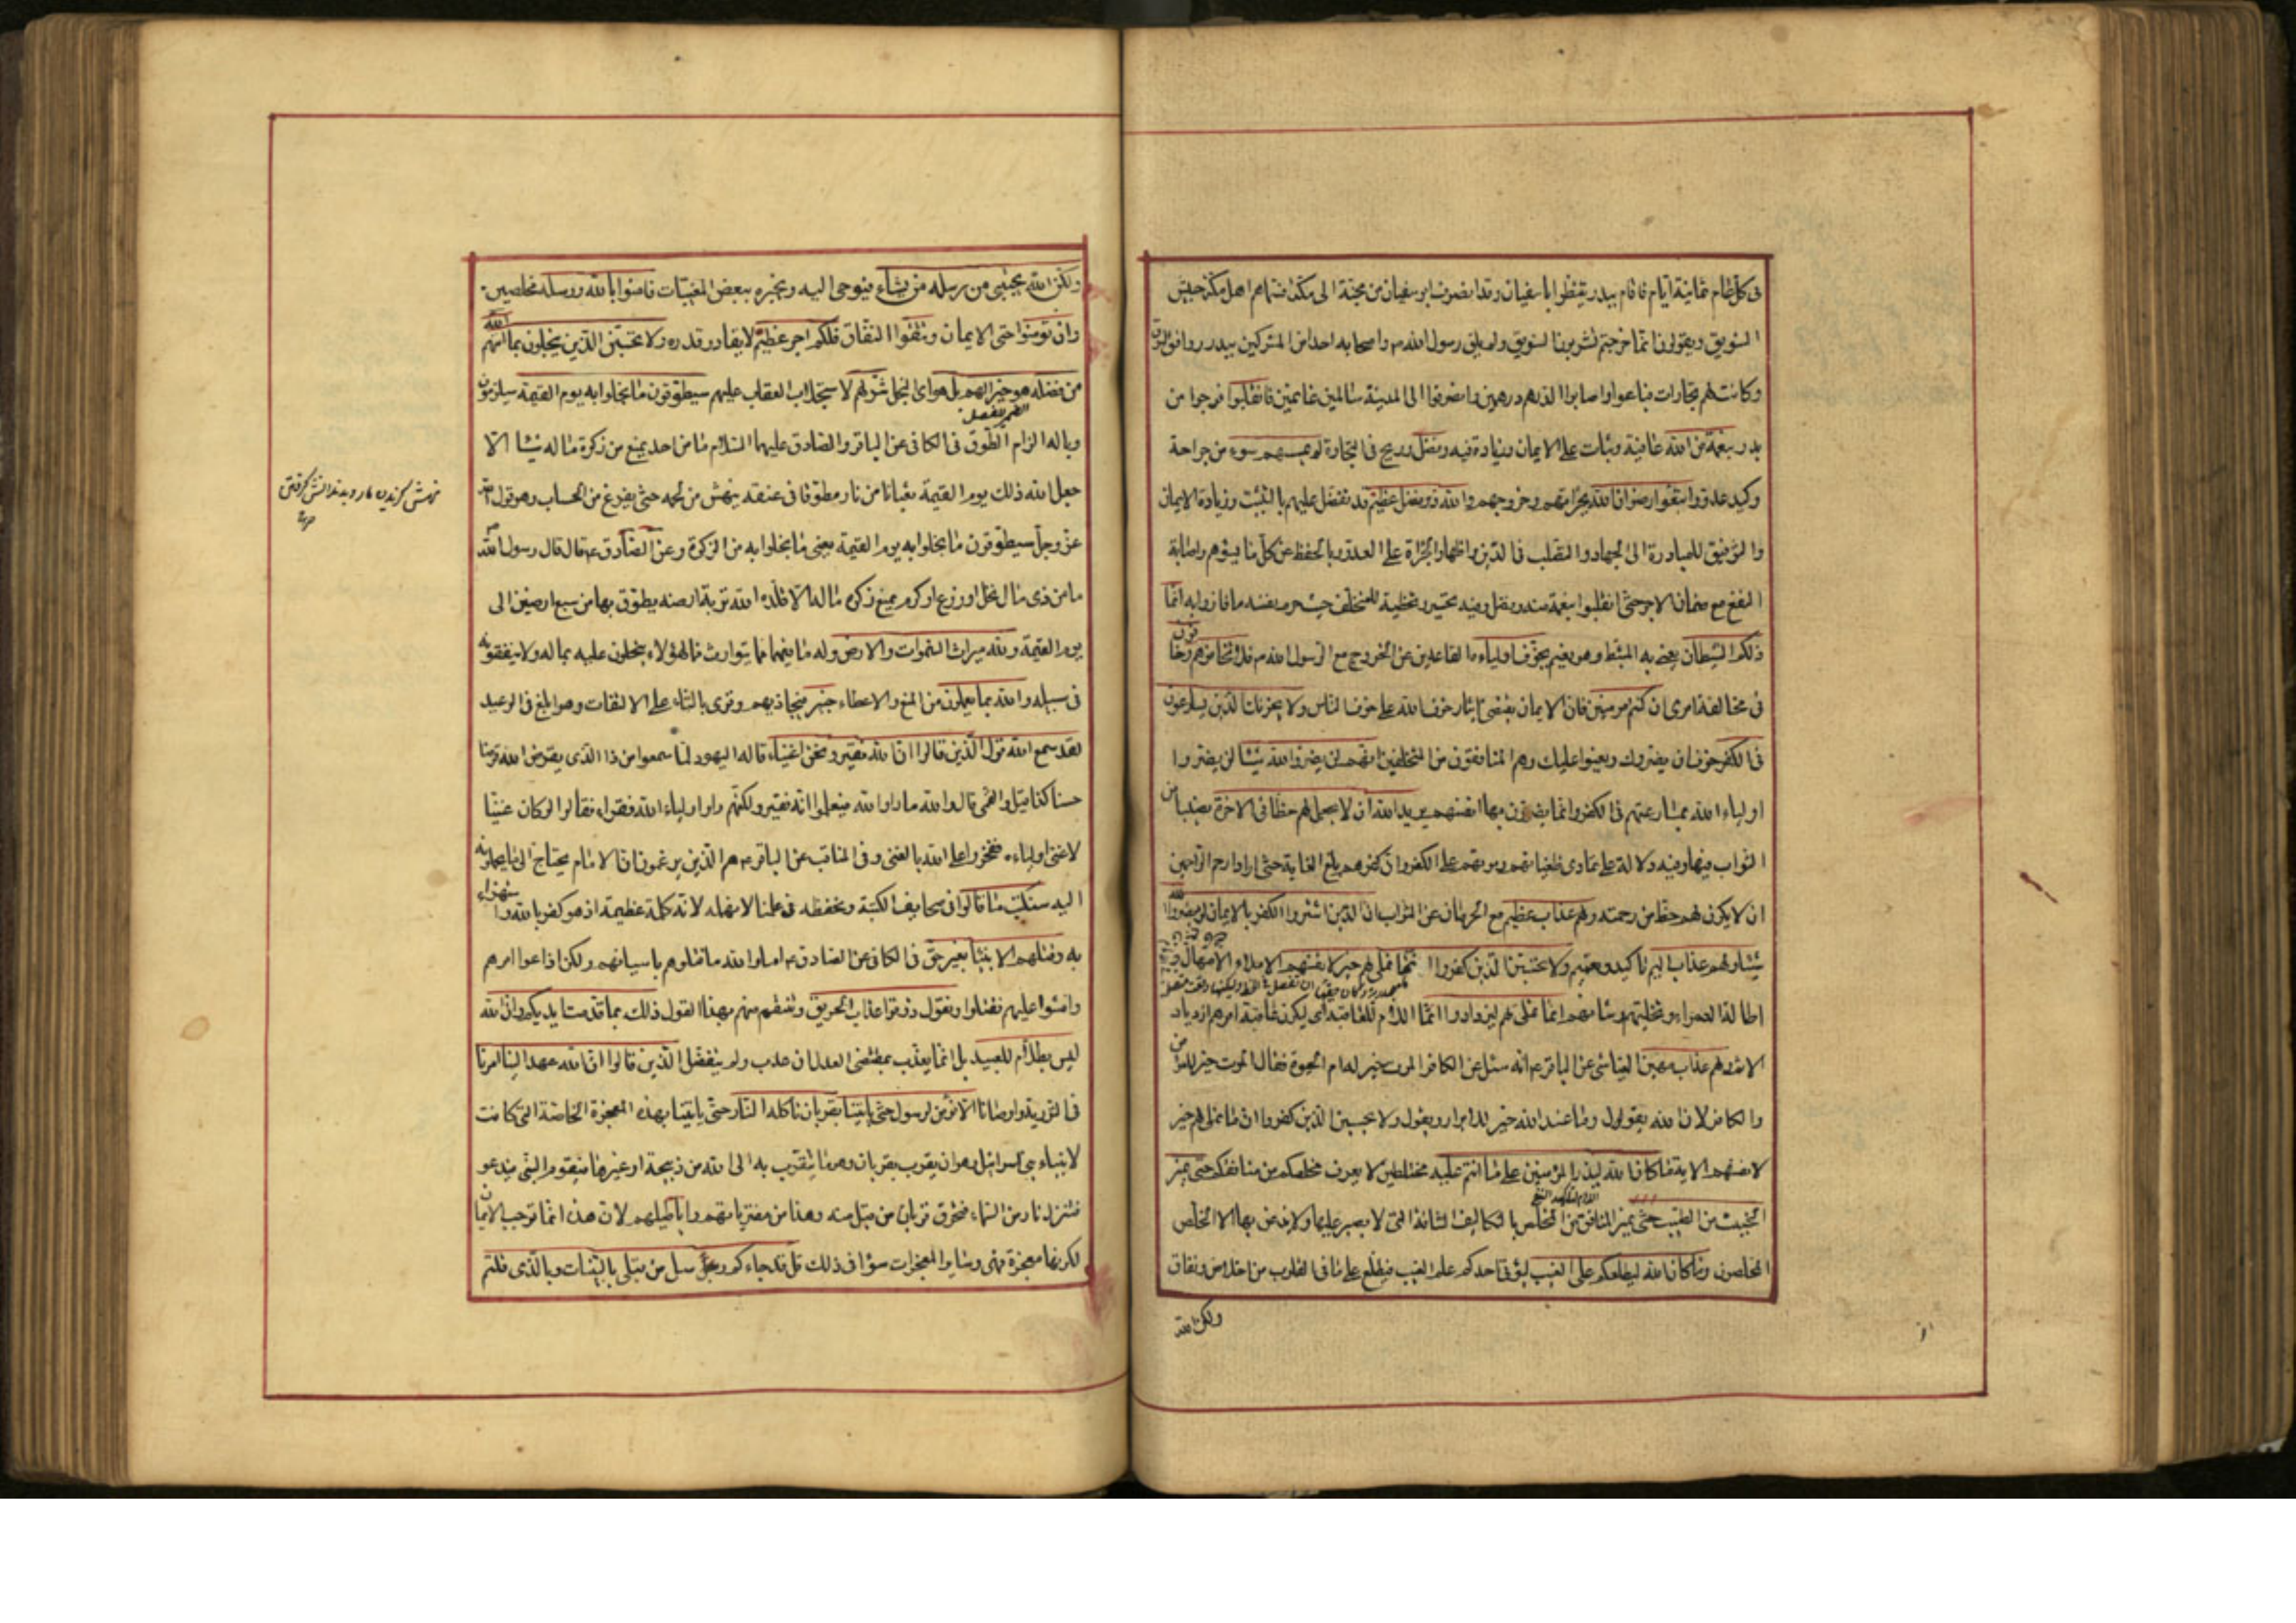 في كل عام ثمانية ايام فاقام ببدر ينتظر ابا سفيان وقد انصرف ابو سفيان من مجنة الى مكة فسماهم اهل مكة جيش
السويق ويقولون انما خرجتم لتشربوا السويق ولم يلق رسول الله ص واصحابه احدا من المشركين ببدر ووافق السوق
وكانت لهم تجارات فباعوا واصابوا الدرهم درهمين وانصرفوا الى المدينة سالمين غانمين فانقلبوا فرجعوا من
بدر بنعمة من الله عافية وثبات على الايمان وزيادة فيه وفضل وربح في التجارة لم يمسسهم سوء من جراحة
وكيد عدو واتبعوا رضوان الله بجرأتهم وخروجهم والله ذو فضل عظيم قد تفضل عليهم بالتثبيت وزيادة الايمان
والتوفيق للمبادرة الى الجهاد والتصلب في الدين واظهار الجرأة على العدو وبالحفظ عن كل ما يسوءهم واصابة
النفع مع ضمان الاجر حتى انقلبوا بنعمة منه وفضل وفيه تحسير وتخطية للمتخلف حيث حرم نفسه ما فازوا به انما
ذلكم الشيطان يعني به المثبط وهو نعيم يخوف اولياءه القاعدين عن الخروج مع الرسول الله ص فلا تخافوهم وخافون
في مخالفة امري ان كنتم مؤمنين فان الايمان يقتضي ايثار خوف الله على خوف الناس ولا يحزنك الذين يسارعون
في الكفر خوف ان يضروك ويعينوا عليك وهم المنافقون من المتخلفين انهم لن يضروا الله شيئا لن يضروا
اولياء الله بمسارعتهم في الكفر وانما يضرون بها انفسهم يريد الله ان لا يجعل لهم حظا في الاخرة نصيبا من
الثواب فيها وفيه دلالة على تمادي طغيانهم وموتهم على الكفر وان كفرهم بلغ الغاية حتى اراد ارحم الراحمين
ان لا يكون لهم حظ من رحمته ولهم عذاب عظيم مع الحرمان عن الثواب ان الذين اشتروا الكفر بالايمان لن يضروا الله
شيئا ولهم عذاب اليم تاكيد وتعميم ولا تحسبن الذين كفروا انما نملي لهم خير لانفسهم الاملاء الامهال
اطالة العمر وتخليتهم وشانهم انما نملي لهم ليزدادوا اثما اللام للعاقبة اي ليكون عاقبة امرهم ازدياد
الاثم ولهم عذاب مهين العياشي عن الباقر ع انه سئل عن الكافر الموت خير له ام الحيوة فقال الموت خير للمؤمن
والكافر لان الله يقول وما عند الله خير للابرار ويقول ولا تحسبن الذين كفروا انما نملي لهم خير
لانفسهم الاية ما كان الله ليذر المؤمنين على ما انتم عليه مختلطين لا يعرف مخلصكم من منافقكم حتى يميز
الخبيث من الطيب حتى يميز المنافق من المخلص بالتكاليف الشاقة التي لا يصبر عليها ولا يذعن بها الا الخلص
المخلصون وما كان الله ليطلعكم على الغيب ليؤتي احدكم علم الغيب فيطلع على ما في القلوب من اخلاص ونفاق
ولكن الله
ولكن الله يجتبي من رسله من يشاء فيوحي اليه ويخبره ببعض المغيبات فامنوا بالله ورسله مخلصين
وان تؤمنوا حق الايمان وتتقوا النفاق فلكم اجر عظيم لا يقادر قدره ولا تحسبن الذين يبخلون بما اتيهم الله
من فضله هو خيرا لهم بل هو اي البخل شر لهم لاستجلاب العقاب عليهم سيطوقون ما بخلوا به يوم القيمة سيلزمون
وباله الزام الطوق في الكافي عن الباقر والصادق عليهما السلام ما من احد يمنع من زكوة ماله شيئا الا
جعل الله ذلك يوم القيمة ثعبانا من نار مطوقا في عنقه ينهش من لحمه حتى يفرغ من الحساب وهو قول الله
نهش گزیدن مار و بدندانش گرفتن
عز وجل سيطوقون ما بخلوا به يوم القيمة يعني ما بخلوا به من الزكوة وعن الصادق ع قال قال رسول الله
ما من ذي مال نخل او زرع او كرم يمنع زكوة ماله الا قلده الله تربة ارضه يطوق بها من سبع ارضين الى
يوم القيمة ولله ميراث السموات والارض وله ما فيهما مما يتوارث فما لهؤلاء يبخلون عليه بماله ولا ينفقونه
في سبيله والله بما يعملون من المنع والاعطاء خبير فيجازيهم وقرئ بالتاء على الالتفات وهو ابلغ في الوعيد
لقد سمع الله قول الذين قالوا ان الله فقير ونحن اغنياء قاله اليهود لما سمعوا من ذا الذي يقرض الله قرضا
حسنا كذا قيل والقمي قال والله ما راوا الله فيعلموا انه فقير ولكنهم راوا اولياء الله فقراء فقالوا لو كان غنيا
لاغنى اولياءه ففخروا على الله بالغنى وفي المناقب عن الباقر ع هم الذين يزعمون ان الامام يحتاج الى ما يحملونه
اليه سنكتب ما قالوا في صحايف الكتبة ونحفظه في علمنا لا نهمله لانه كلمة عظيمة اذ هو كفر بالله واستهزاء
به وقتلهم الانبياء بغير حق في الكافي عن الصادق ع اما والله ما قتلوهم باسيافهم ولكن اذاعوا امرهم
وافشوا عليهم فقتلوا ونقول ذوقوا عذاب الحريق وننتقم منهم بهذا القول ذلك بما قدمت ايديكم وان الله
ليس بظلام للعبيد بل انما يعذب بمقتضى العدل ان عذب ولم يتفضل الذين قالوا ان الله عهد الينا امرنا
في التورية واوصانا الا نؤمن لرسول حتى ياتينا بقربان تاكله النار حتى ياتينا بهذه المعجزة الخاصة التي كانت
لانبياء بني اسرائيل وهو ان يقرب بقربان وهو ما يتقرب به الى الله من ذبيحة او غيرها فيقوم النبي فيدعو
فتنزل نار من السماء فتحرق قربان من قبل منه وهذا من مفترياتهم واباطيلهم لان هذا انما توجب الايمان
لكونها معجزة فهي وسائر المعجزات سواء في ذلك قل قد جاءكم رسل من قبلي بالبينات وبالذي قلتم